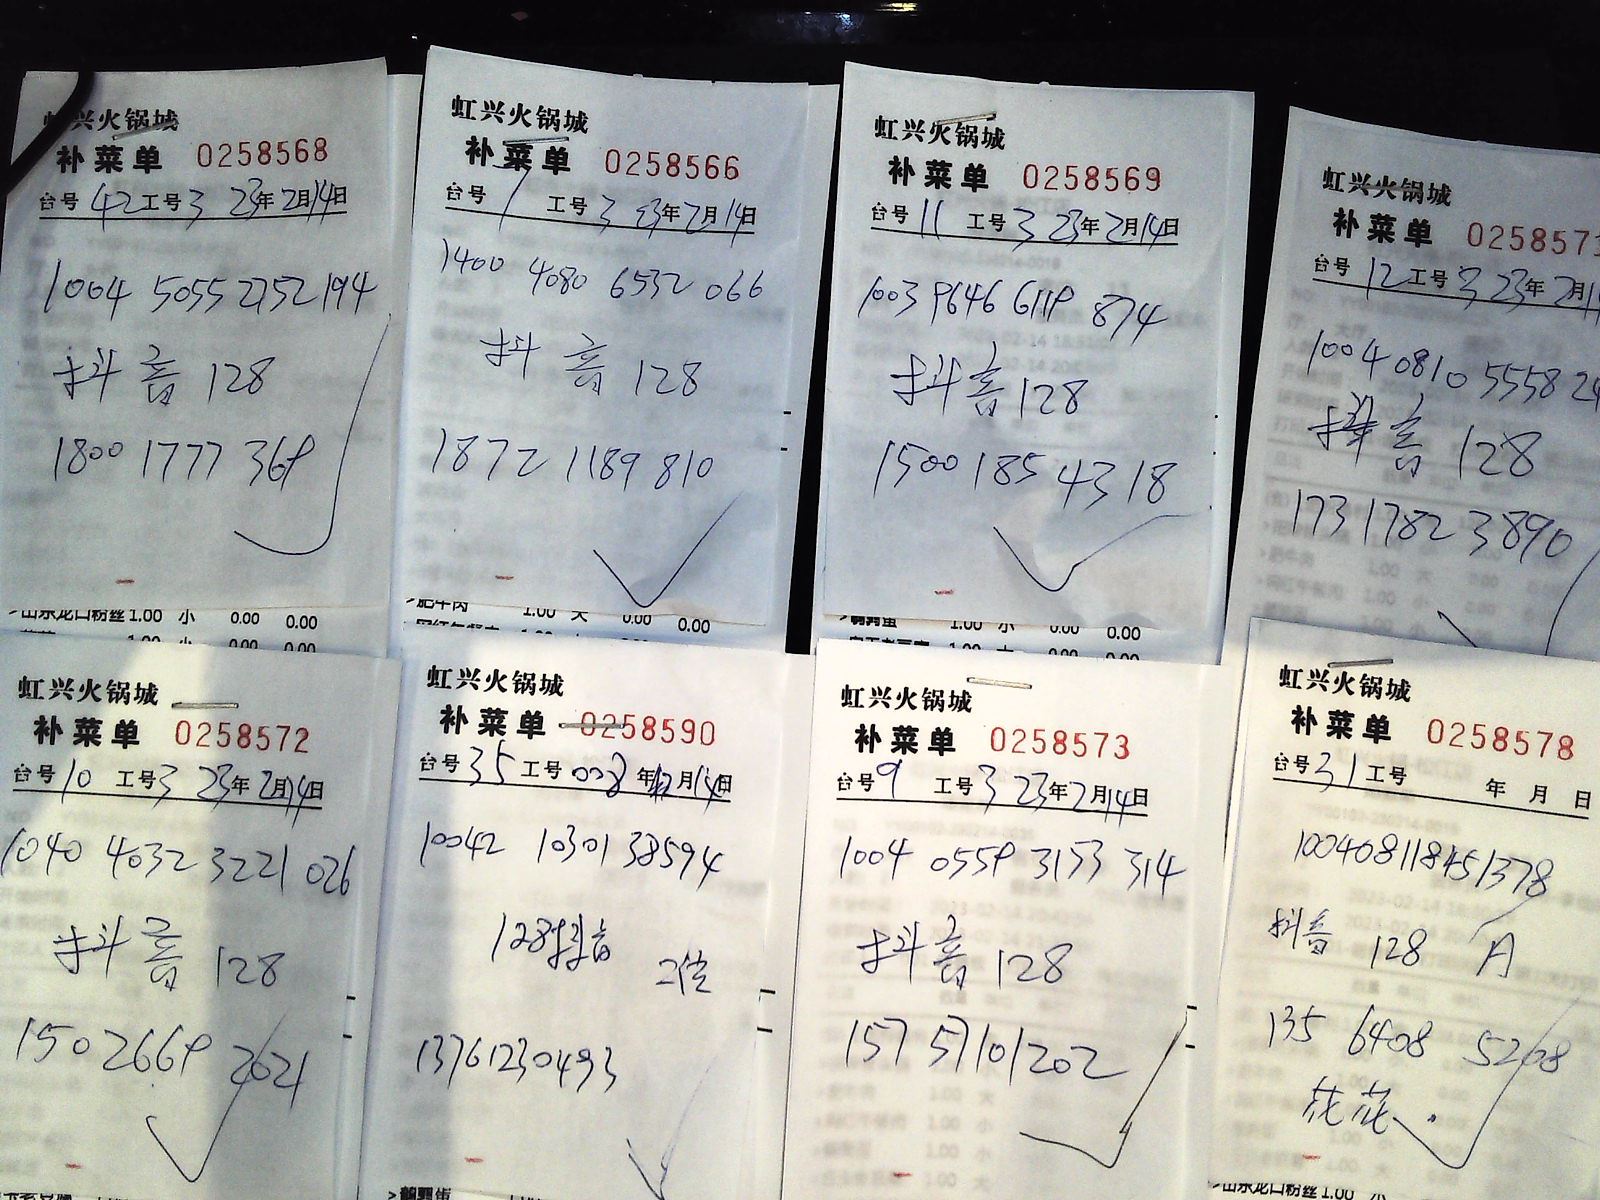 虹兴火锅城
补菜单 0258568
台号 42 工号 3 23年2月14日
1004 5055 2752 194
抖音 128
1800 1777 369
>山东龙口粉丝 1.00 小 0.00 0.00
虹兴火锅城
补菜单 0258566
台号 1 工号 3 23年2月14日
1400 4080 6532 066
抖音 128
1872 1189 810
>肥牛肉 1.00 大 0.00 0.00
虹兴火锅城
补菜单 0258569
台号 11 工号 3 23年2月14日
1003 9646 6119 874
抖音 128
1500 185 4318
>鹌鹑蛋 1.00 小 0.00 0.00
虹兴火锅城
补菜单 025857
台号 12 工号 3 23年2月1
1004 0810 5558 24
抖音 128
173 1782 3890
虹兴火锅城
补菜单 0258572
台号 10 工号 3 23年2月14日
1040 4032 3221 026
抖音 128
150 2669 2621
虹兴火锅城
补菜单 0258590
台号 35 工号 008 年 月14日
10042 10301 38594
128抖音 2位
13761230493
>鹌鹑蛋
虹兴火锅城
补菜单 0258573
台号 9 工号 3 23年2月14日
1004 0559 3153 314
抖音 128
157 57101202
虹兴火锅城
补菜单 0258578
台号 31 工号 年 月 日
100408118451378
抖音 128 A
135 6408 5208
花花
>山东龙口粉丝 1.00 小